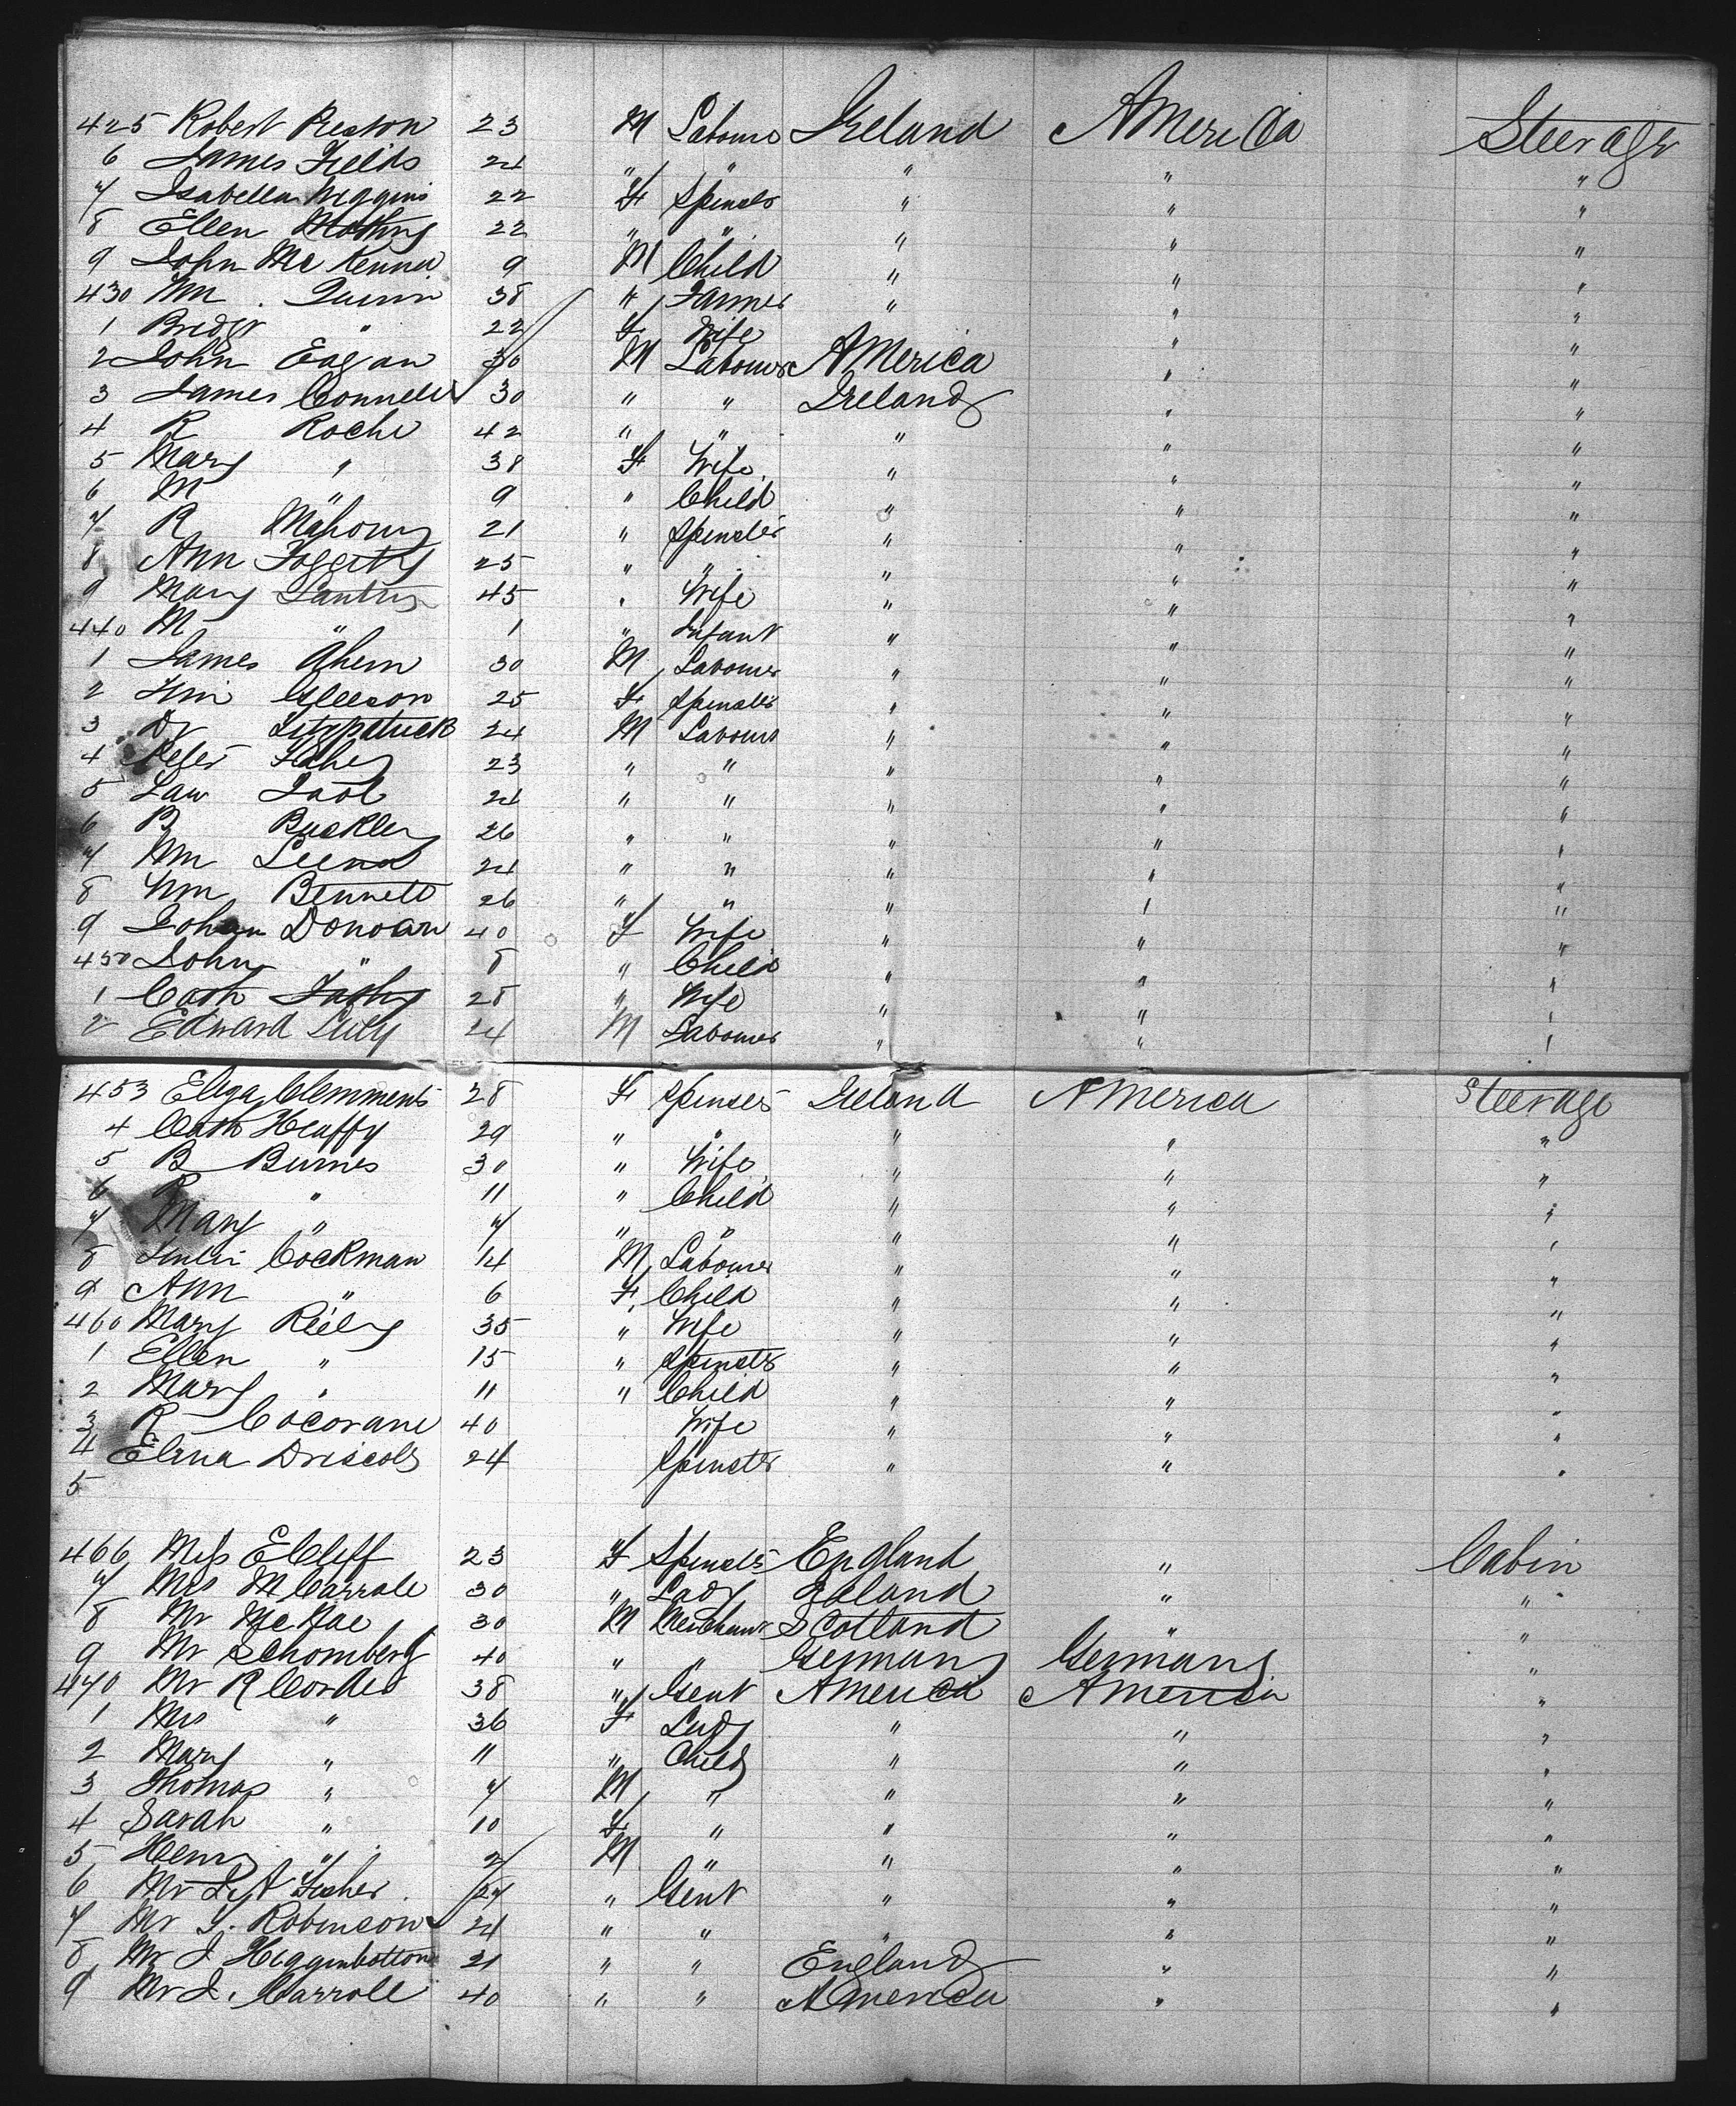 425 Robert Preston 23 M Labourer Ireland America Steerage
6 James Fields 24 " " " " "
7 Isabella Wiggins 22 F Spinster " " "
8 Ellen 22 " " " " "
9 John McKenna 9 M Child " " "
430 Wm. Quinn 38 " Farmer " " "
1 Bridgt " 22 F Wife " " "
2 John Eagan 30 M Labourer America " "
3 James Connell 30 " " Ireland " "
4 R Roche 42 " " " " "
5 Mary " 38 F Wife " " "
6 M " 9 " Child " " "
7 R Mahony 21 " Spinster " " "
8 Ann Foggerty 25 " " " " "
9 Mary 45 " Wife " " "
440 M " 1 " Infant " " "
1 James Ahern 30 M Labourer " " "
2 Gleeson 25 F Spinster " " "
3 Fitzpatrick 24 M Labourer " " "
4 Peter 23 " " " " "
5 Law 24 " " " " "
6 B Buckley 26 " " " " "
7 Wm 24 " " " " "
8 Wm Bennett 26 " " " " "
9 Johan Donovan 40 F Wife " " "
450 John " 8 " Child " " "
1 Cath 28 " Wife " " "
2 Edward 24 M Labourer " " "
453 Eliza Clemments 28 F Spinster Ireland America Steerage
4 Cath Heaffy 29 " " " " "
5 B Burnes 30 " Wife " " "
6 R " 11 " Child " " "
7 Mary " 7 " " " " "
8 Cockman 14 M Labourer " " "
9 Ann " 6 F Child " " "
460 Mary Rieley 35 " Wife " " "
1 Ellen " 15 " Spinster " " "
2 Mary " 11 " Child " " "
3 R Cocorane 40 Wife " " "
4 Elina Driscoll 24 Spinster " " "
5
466 Miss E Cliff 23 F Spinster England " Cabin
7 Mrs M Carrole 30 " Lady " "
8 Mr McRae 30 M Merchant Scotland " "
9 Mr Schomberg 40 " " Germany Germany "
470 Mr R Cordes 38 " Gent America America "
1 Mrs " 36 F Lady " " "
2 Mary " 11 " Child " " "
3 Thomas " 7 M " " " "
4 Sarah " 10 F " " " "
5 Henry " 2 M " " " "
6 Mr Fisher 27 " Gent " " "
7 Mr Robinson 24 " " " " "
8 Mr J Higginbottom 21 " " England " "
9 Mr J. Carroll 40 " " America " "